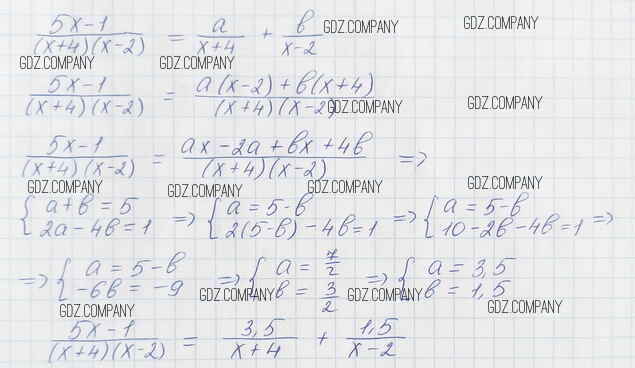 (5x-1)/((x+4)(x-2)) = a/(x+4) + в/(x-2) GDZ.COMPANY GDZ.COMPANY
GDZ.COMPANY GDZ.COMPANY
(5x-1)/((x+4)(x-2)) = (a(x-2)+в(x+4))/((x+4)(x-2)) GDZ.COMPANY GDZ.COMPANY
(5x-1)/((x+4)(x-2)) = (ax-2a+вx+4в)/((x+4)(x-2)) =>
GDZ.COMPANY GDZ.COMPANY GDZ.COMPANY GDZ.COMPANY
{ a+в=5 => { a=5-в => { a=5-в
2a-4в=1 2(5-в)-4в=1 10-2в-4в=1 =>
=> { a=5-в => { a=7/2 => { a=3,5
-6в=-9 в=3/2 в=1,5
GDZ.COMPANY GDZ.COMPANY GDZ.COMPANY GDZ.COMPANY
(5x-1)/((x+4)(x-2)) = 3,5/(x+4) + 1,5/(x-2)